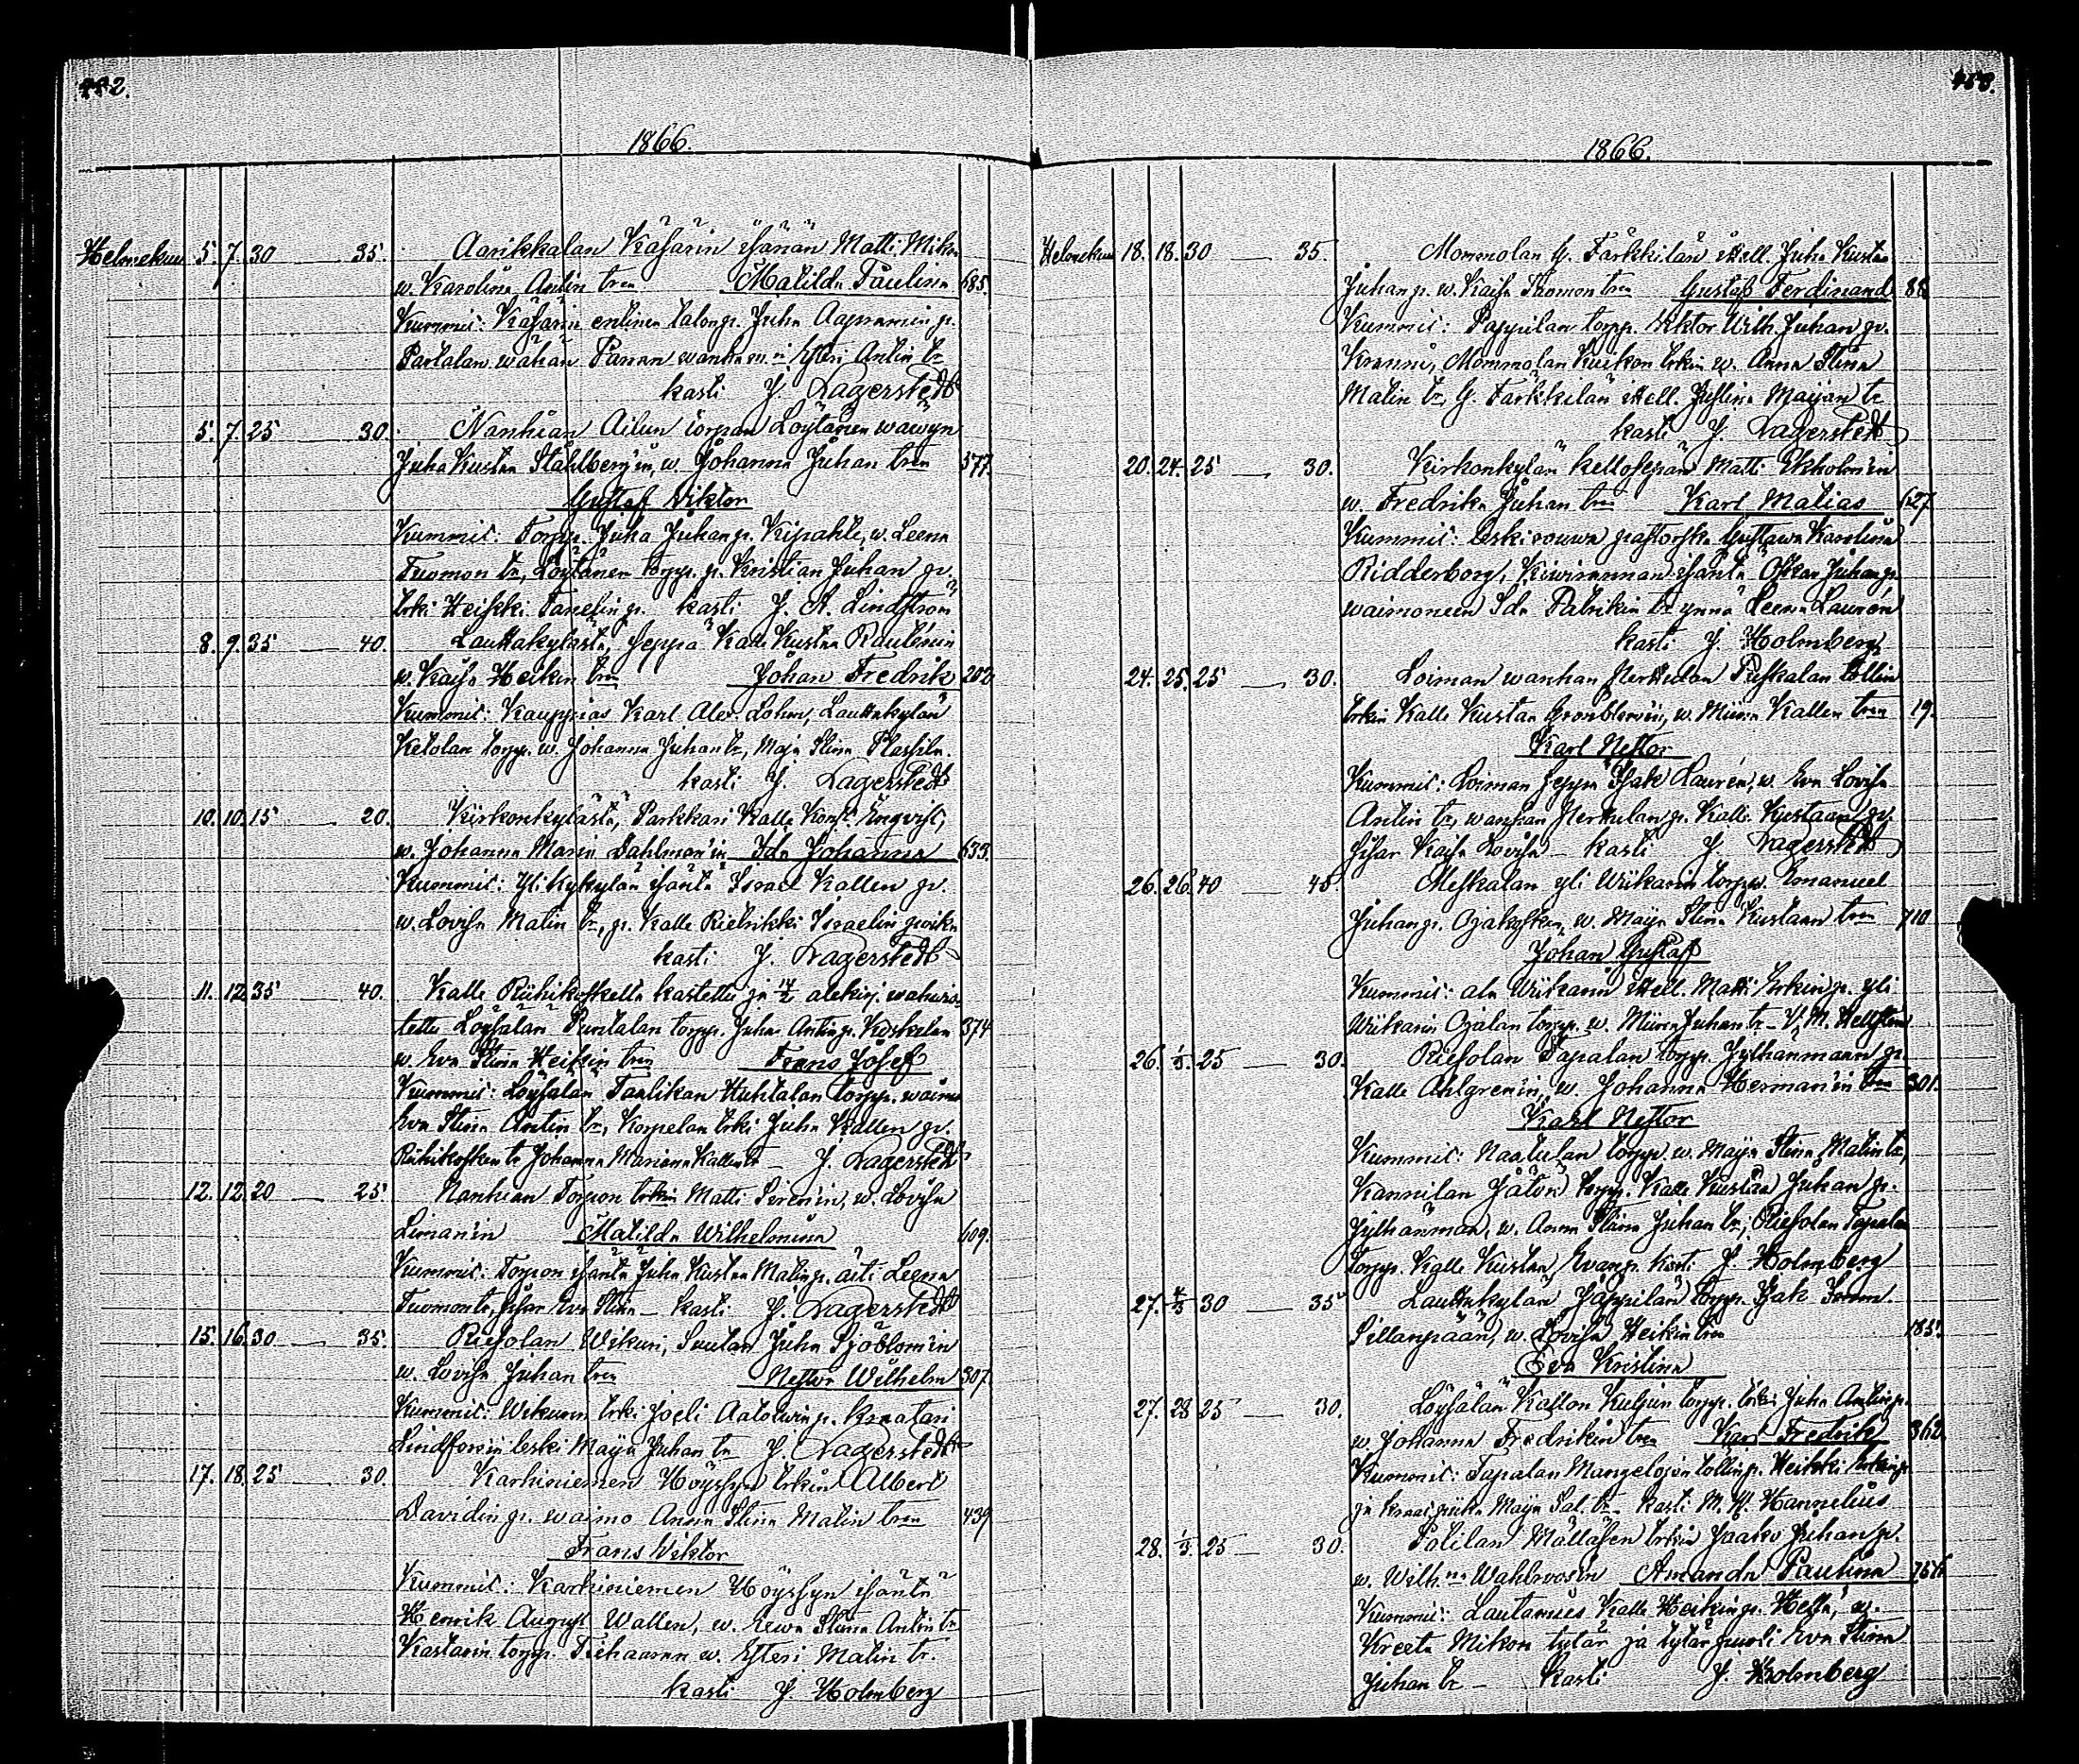 442.
1866.
Helmekuu 5. 7. 30 35. Aarikkalan Käfärin isännän Matti Mikn
w. Karolina Antin tren Matilda Paulina 685.
Kummit: Käfärin entinen talon p. Juha Aapramin p.
Partalan wähän Panun wanha w. Esteri Antin tr
kasti J. Lagerstedt
5. 7. 25 30. Nanhian Ailun torpan Löytänen wäwyn
Juha Kustaa Ståhlberg'in, w. Johanna Juhan tren 577.
Gustaf Viktor
Kummit: Torpp. Juha Juhan p. Kipahti, w. Leena
Tuomon tr, Löytänen torpp. p. Kristian Juhan p.
trki Heikki Tanelin p. kasti J. A. Lindström
8. 9. 35 40. Lauttakylästä, Seppä Kalle Kustaa Rautén'in
w. Kaisa Heikin tren Johan Fredrik 202
Kummit: Kauppias Karl Alex. Lohm, Lauttakylän
Ketolan torpp. w. Johanna Juhan tr, Maja Stina Flassila.
kasti J. Lagerstedt
10. 10. 15 20. Kirkonkylästä, Parkkari Kalle Konst. Engvist,
w. Johanna Maria Dahlman'in Ida Johanna 633.
Kummit: Ylikylän isäntä Israel Kallen p.
w. Lovisa Matin tr, p. Kalle Rietrikki Israelin poika
kasti J. Lagerstedt
11. 12. 35 40. Kalle Riihikoskelta kastettu ja 14/2 alekirj. wahwis-
tettu Löysälän Puntalan torpp. Juha Antin p. Koskelan 374
w. Eva Stina Heikin tren Frans Josef
Kummit: Löysälän Tanlikan Huhtalan torpp. waimo
Eva Stina Antin tr, Korpelan trki Juha Kallen p.
Riihikosken tr Johanna Mariana Kallen tr — J. Lagerstedt
12. 12. 20 25 Nanhian Torpon trkin Matti Seren'in, w. Lovisa
Liman'in Matilda Wilhelmina 609.
Kummit: Torpon isäntä Juha Kustaa Matin p. äiti Leena
Tuomon tr, sisar Eva Stina — kasti J. Lagerstedt
15. 16. 30 35. Riesolan Wikuri, Suutari Juha Sjöblom'in
w. Lovisa Juhan tren Nestor Wilhelm 307.
Kummit: Wikurin trki Joeli Aatolwin p. Kraatari
Lindforsin leski Maija Juhan tr J. Lagerstedt
17. 18. 25 30. Karhiniemen Höyssyn trkin Albert
Davidin p. waimo Anna Stina Matin tren 439
Frans Viktor
Kummit: Karhiniemen Höyssyn isäntä
Henrik August Wallen, w. Eewa Stina Antin tr
Kastarin torpp. w. Esteri Matin tr.
kasti J. Holmberg
1866.
Helmekuu 18. 18. 30 35. Mommolan G. Färkkilän itsell. Juha Kustaa
Juhan p. w. Kaisa Tuomon tren Gustaf Ferdinand 88
Kummit: Pappilan torpp. Wiktor Wilh. Juhan p.
Kranni, Mommolan Kuikon trkin w. Anna Stina
Matin tr, G. Färkkilän itsell. Justina Maijan tr
kasti J. Lagerstedt
20. 24. 25 30. Kirkonkylän kellosepän Matti Ekholm'in
w. Fredrika Juhan tren Karl Matias 627.
Kummit: leskirouwa Gustawa Karolina
Ridderborg, Kiwirannan isäntä Oskar Juhan p.
waimoneen Ida Patrikin tr ynnä Leena Laurén
kasti J. Holmberg
24. 25. 25 30. Loiman wanhan Herttulan Puskalan töllin
trkin Kalle Kustaa Grönblom'in, w. Miina Kallen tren 19.
Karl Nestor
Kummit: Loiman seppä Isak Laurén, w. Eva Lovisa
Antin tr, wanhan Herttulan p. Kalle Kustaan p.
sisar Kaisa Lovisa — kasti J. Lagerstedt
26. 26. 40 45 Meskalan yli Wiikarin torp. w. Emanuel
Juhan p. Ojakosken, w. Maija Stina Kustaan tren 710
Johan Gustaf
Kummit: ala Wiikarin itsell. Matti Erkin p. yli
Wiikarin Ojalan torpp. w. Miina Juhan tr — V. M. Hellsten
26. 1/3. 25 30. Riesolan Tapalan torpp. Jylhänmaan p.
Kalle Ahlgren'in, w. Johanna Herman'in tren 301.
Karl Nestor
Kummit: Naatulan torpp. w. Maija Stina Matin tr,
Kannilan Jätön torpp. Kalle Kustaa Juhan p.
Jylhänmaa, w. Anna Stiina Juhan tr, Riesolan Tapalan
torpp. Kalle Kustaa kasti J. Holmberg
27. 4/3 30 35 Lauttakylän Jäppilän torpp. Isak
Sillanpään, w. Lovisa Heikin tren 185.
Eva Kristina
27. 28 25 30. Löysälän Kallon Kuljun torpp. trki Juha Antin p.
w. Johanna Fredrikin tren Karl Fredrik 362
Kummit: Tapalan Mangelojan töllin p. Heikki Erkin p.
ja Maija Sal. tr — kasti M. H. Hannelius
28. 1/3. 25 30. Palilan Mälläsen trkin Jaako Juhan p.
w. Wilh:na Wahlroos'in Amanda Paulina 756
Kummit: Lautamies Kalle Heikin p. Hella, w.
Kreeta Mikon tytär ja tytär puoli Eva Stina
Juhan tr — Kasti J. Holmberg